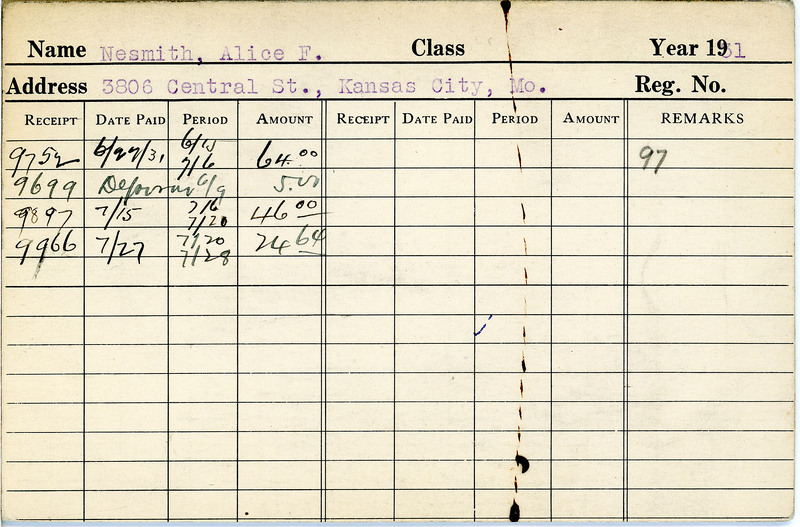 Name Nesmith, Alice F. Class Year 1931
Address 3806 Central St., Kansas City, Mo. Reg. No.
RECEIPT DATE PAID PERIOD AMOUNT RECEIPT DATE PAID PERIOD AMOUNT REMARKS
9752 6/27/31 6/15 7/6 64.00 97
9699 6/9 5.00
9897 7/15 7/6 7/20 46 00
9966 7/27 7/20 7/28 24 64